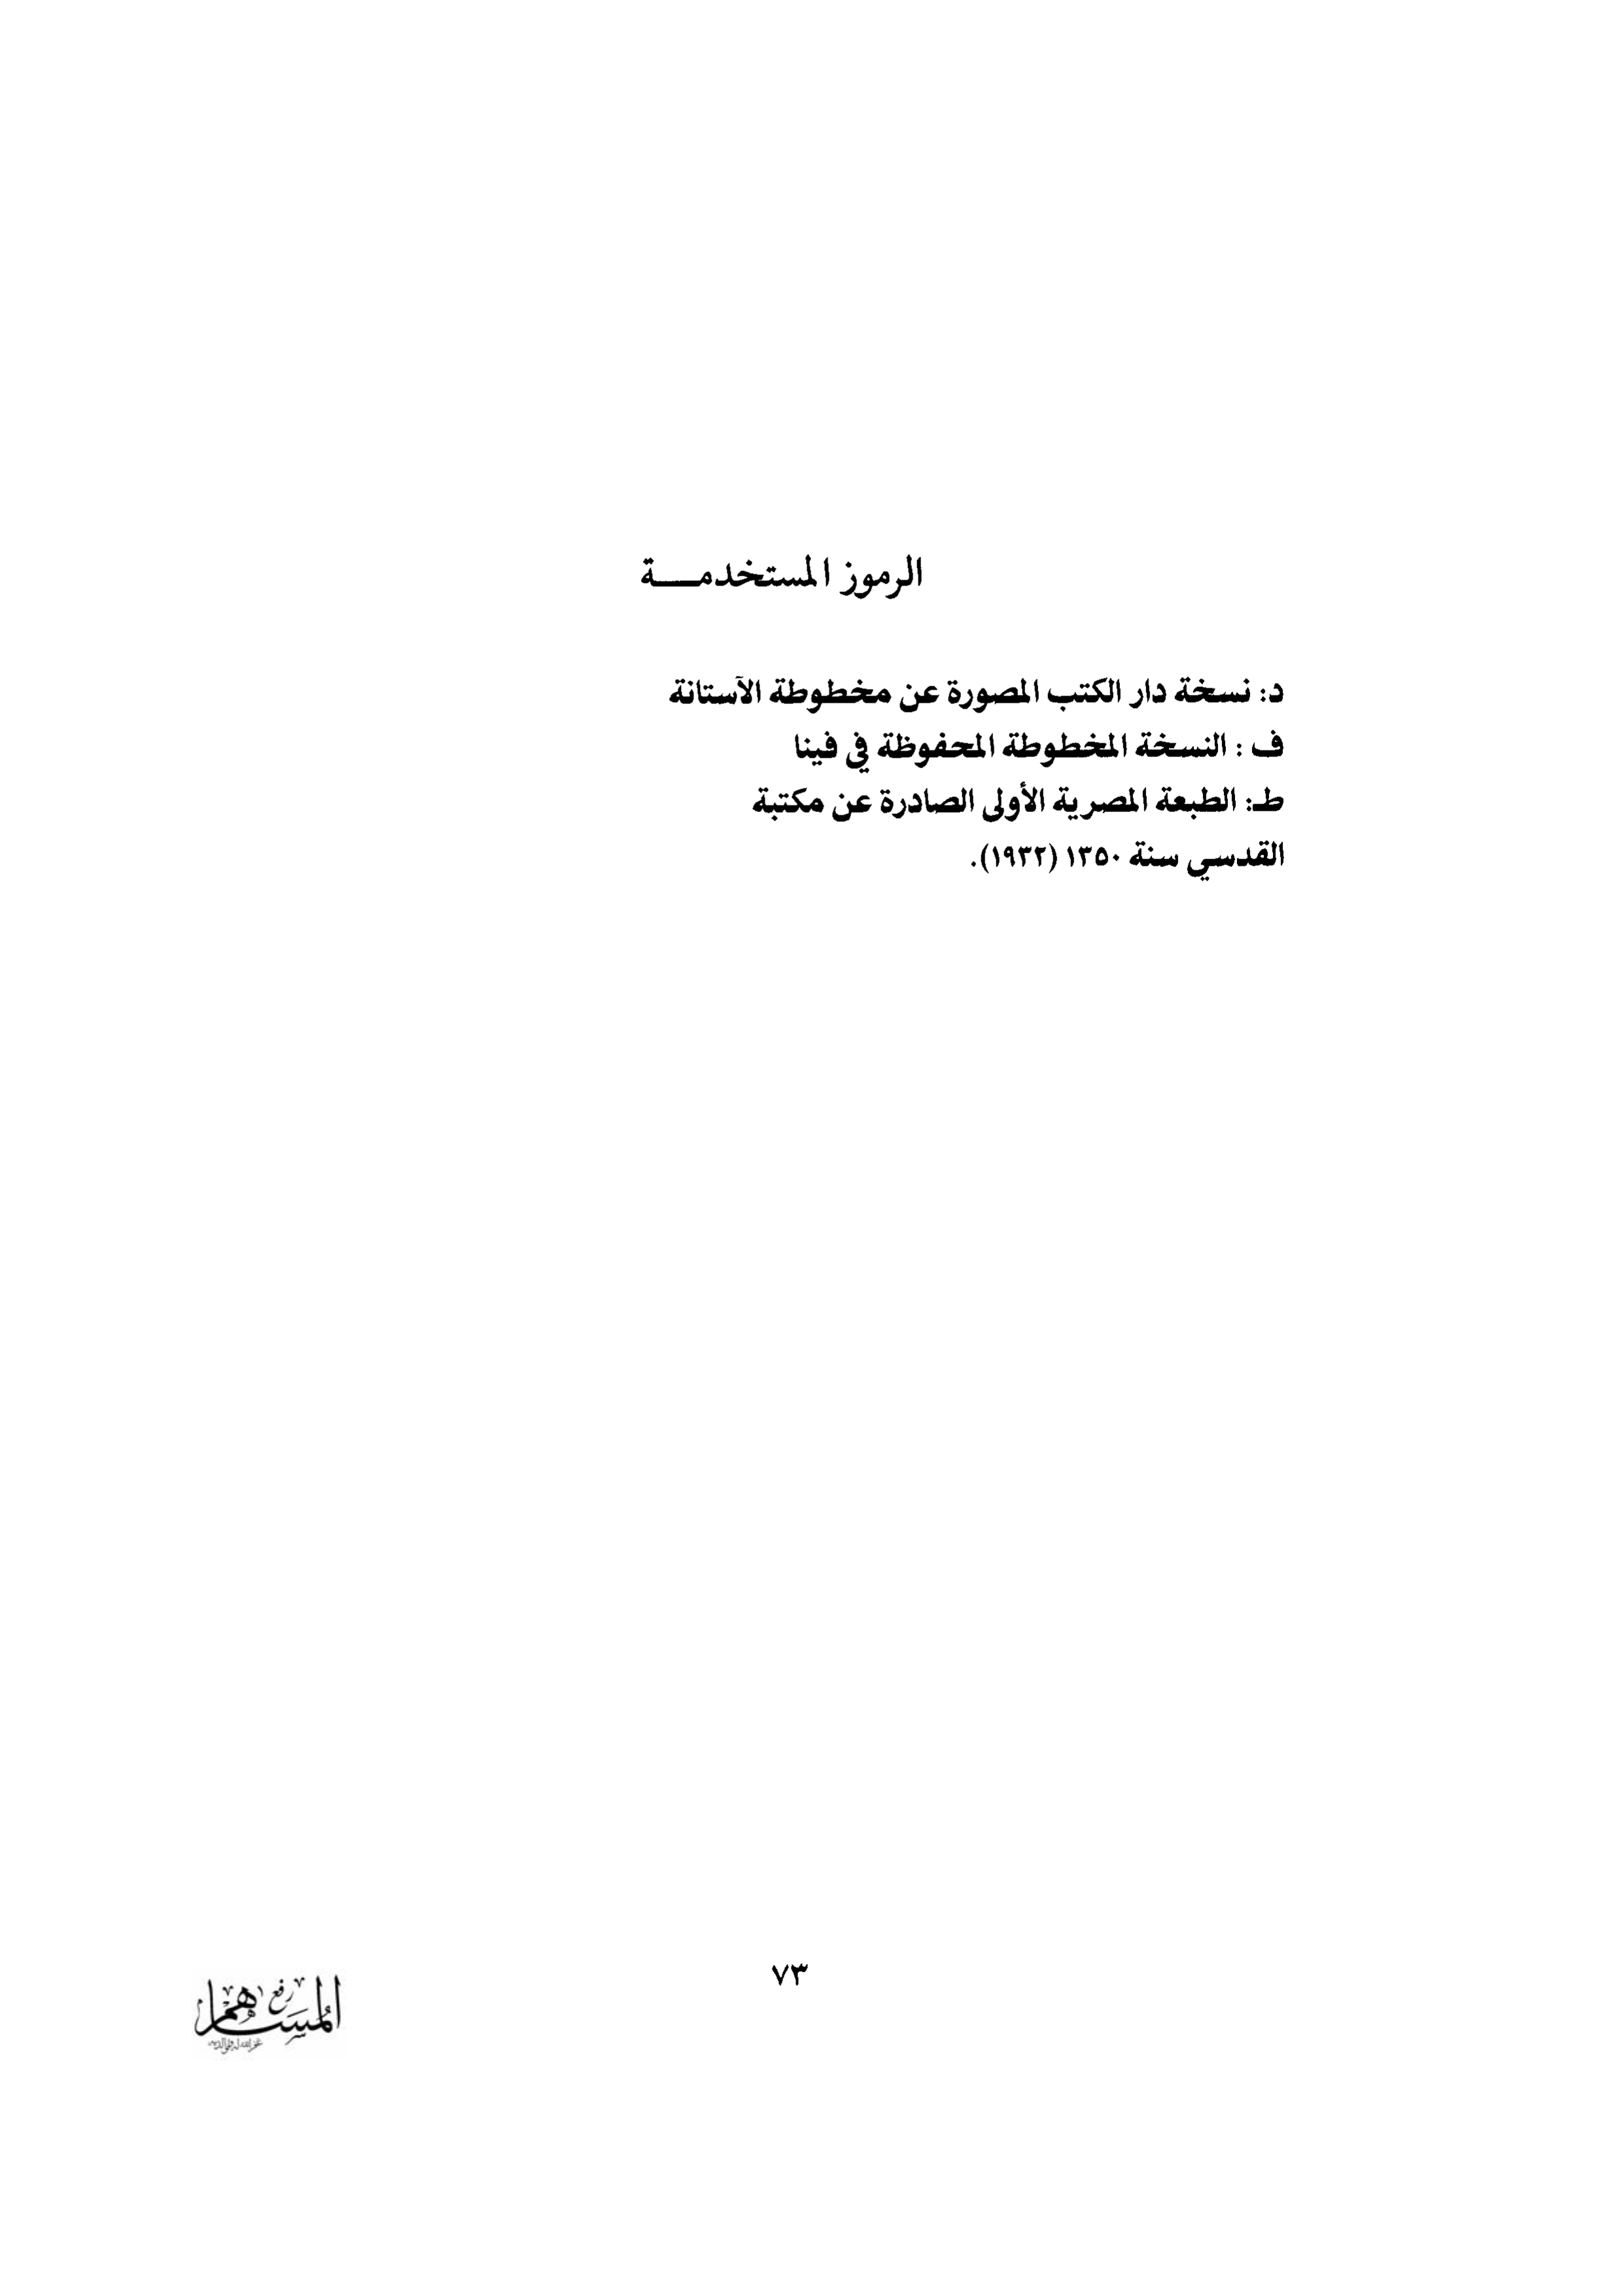 الرموز المستخدمـــة
د: نسخة دار الكتب المصورة عن مخطوطة الآستانة
ف : النسخة المخطوطة المحفوظة في فينا
طـ: الطبعة المصرية الأولى الصادرة عن مكتبة
القدسي سنة ١٣٥٠ (١٩٣٢).
٧٣
رفع
المساهم
غفر الله له ولوالديه